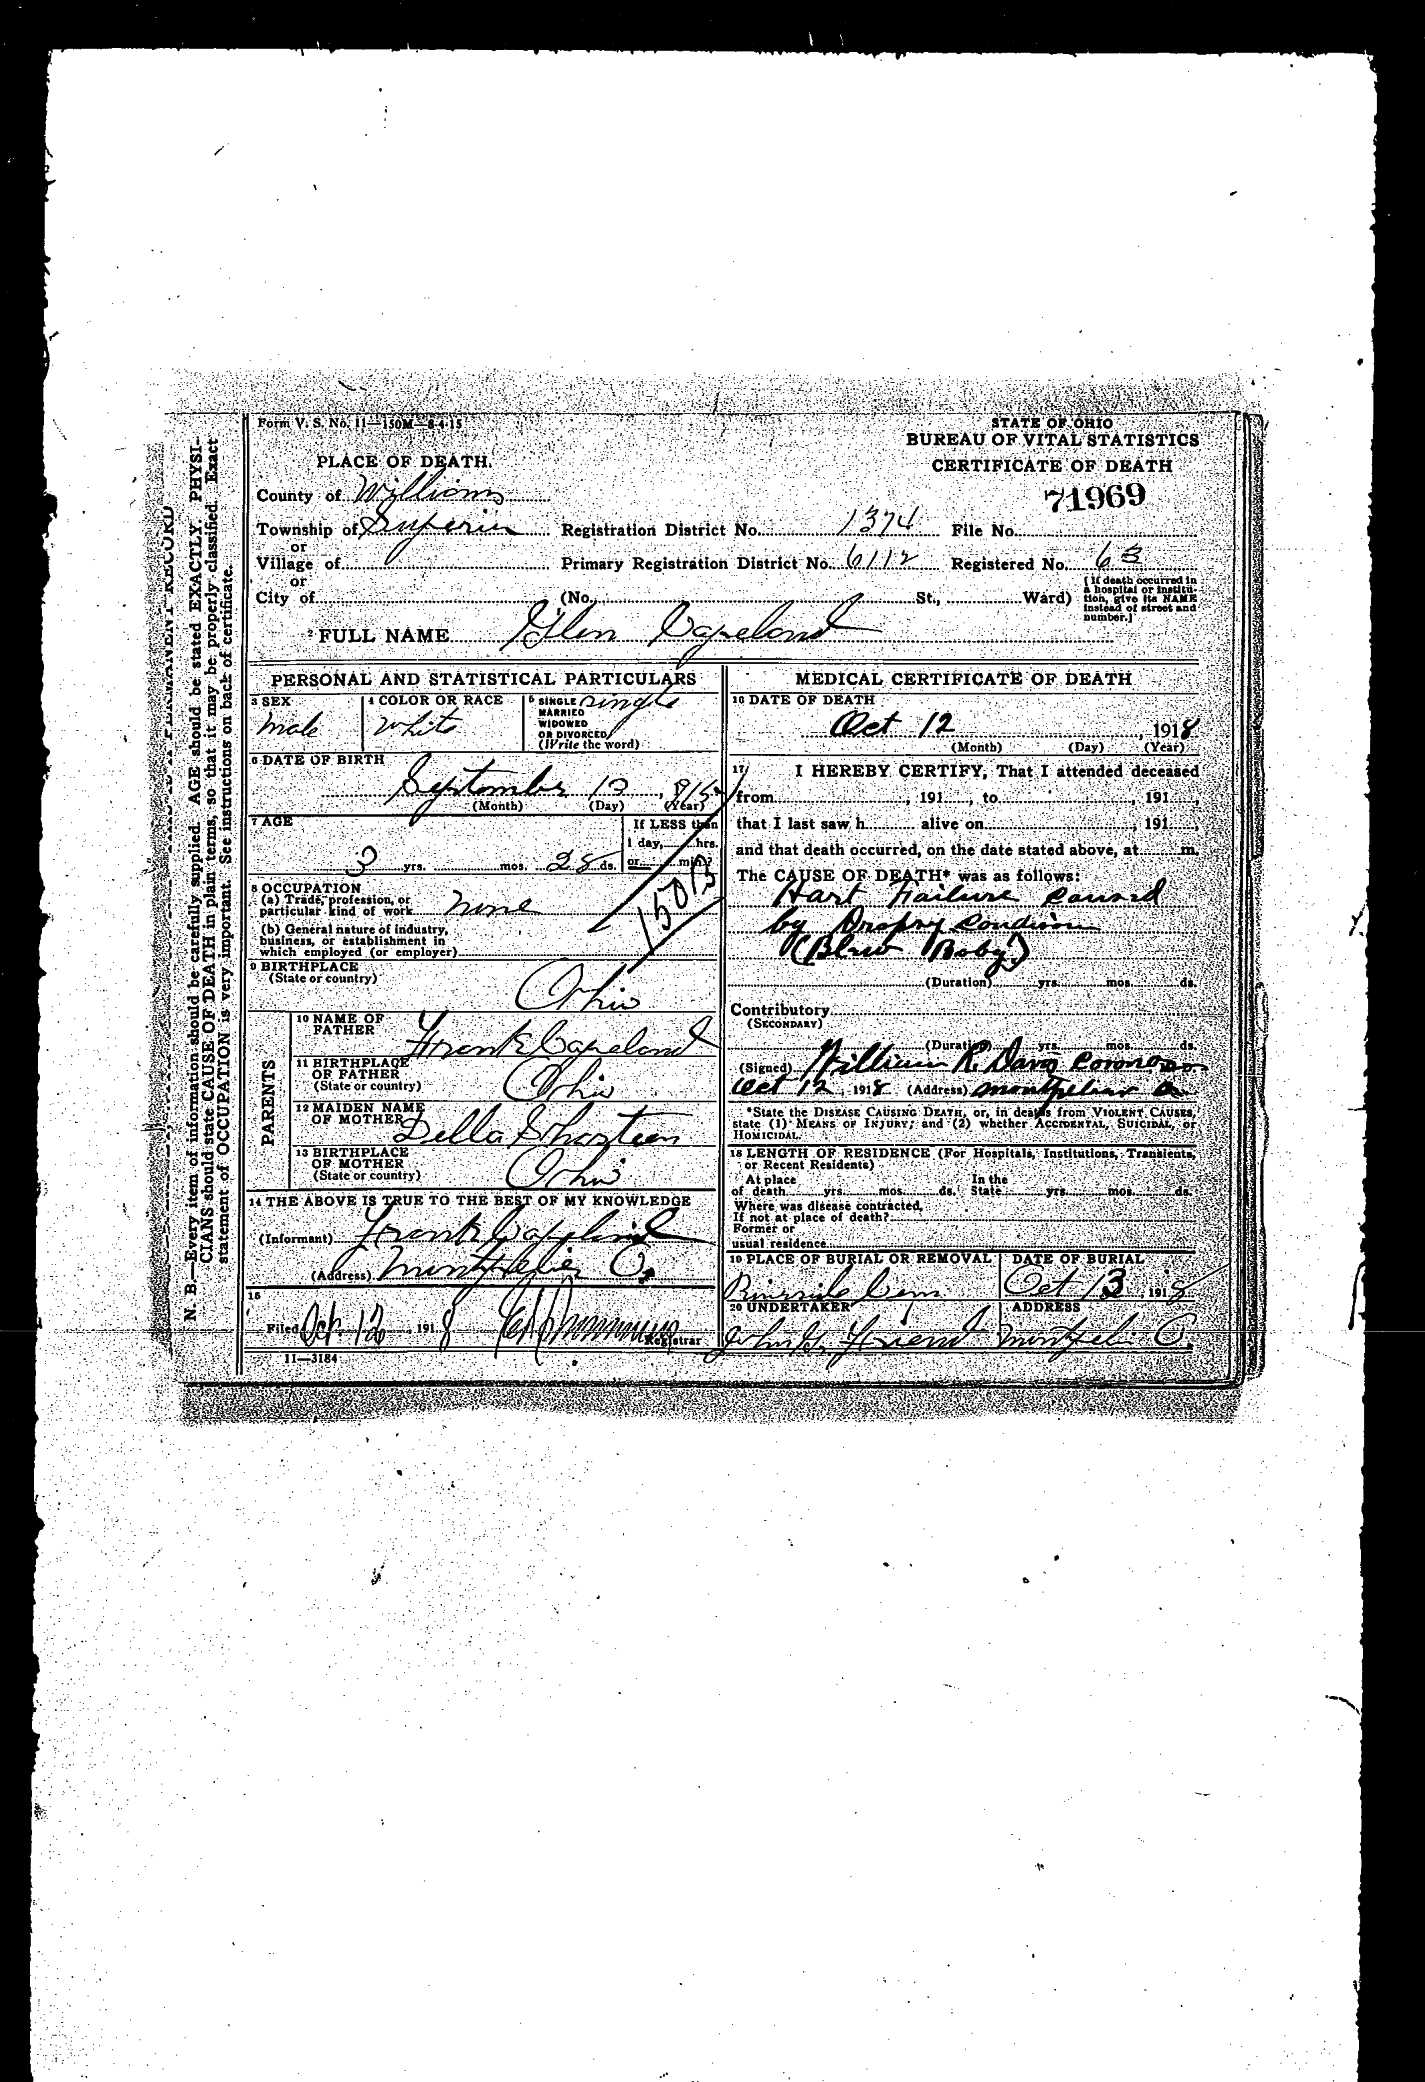 Form V. S. No. 11—150M—8-4-15
STATE OF OHIO
BUREAU OF VITAL STATISTICS
CERTIFICATE OF DEATH
71969
PLACE OF DEATH.
County of Williams
Township of Superior Registration District No. 1374 File No.
or
Village of Primary Registration District No. 6112 Registered No. 63
or
City of (No. St., Ward)
[If death occurred in
a hospital or institu-
tion, give its NAME
instead of street and
number.]
2 FULL NAME Glen Copeland
PERSONAL AND STATISTICAL PARTICULARS
3 SEX
Male
4 COLOR OR RACE
White
5 SINGLE
MARRIED
WIDOWED
OR DIVORCED
(Write the word)
Single
6 DATE OF BIRTH
September
(Month) (Day) (Year)
7 AGE
3 yrs. mos. 28 ds.
If LESS than
1 day, hrs.
or min?
8 OCCUPATION
(a) Trade, profession, or
particular kind of work None
(b) General nature of industry,
business, or establishment in
which employed (or employer)
9 BIRTHPLACE
(State or country)
Ohio
PARENTS
10 NAME OF
FATHER
Frank Copeland
11 BIRTHPLACE
OF FATHER
(State or country)
Ohio
12 MAIDEN NAME
OF MOTHER
Della
13 BIRTHPLACE
OF MOTHER
(State or country)
Ohio
14 THE ABOVE IS TRUE TO THE BEST OF MY KNOWLEDGE
(Informant) Frank Copeland
(Address) Montpelier O.
15
Filed Oct. 12, 1918
Registrar
11—3184
MEDICAL CERTIFICATE OF DEATH
16 DATE OF DEATH
Oct 12, 1918
(Month) (Day) (Year)
17 I HEREBY CERTIFY, That I attended deceased
from , 191 , to , 191 ,
that I last saw h alive on , 191 ,
and that death occurred, on the date stated above, at m.
The CAUSE OF DEATH* was as follows:
Hart Failure caused
by Dropsy condision
(Blew Baby)
(Duration) yrs. mos. ds.
Contributory
(SECONDARY)
(Duration) yrs. mos. ds.
(Signed) William R. Davis Coroner
Oct 12, 1918 (Address) Montpelier O
*State the DISEASE CAUSING DEATH, or, in deaths from VIOLENT CAUSES,
state (1) MEANS OF INJURY; and (2) whether ACCIDENTAL, SUICIDAL, or
HOMICIDAL.
18 LENGTH OF RESIDENCE (For Hospitals, Institutions, Transients,
or Recent Residents)
At place In the
of death yrs. mos. ds. State yrs. mos. ds.
Where was disease contracted,
If not at place of death?
Former or
usual residence
19 PLACE OF BURIAL OR REMOVAL
Riverside Cem
DATE OF BURIAL
Oct 13, 1918
20 UNDERTAKER
John G. Friend
ADDRESS
Montpelier O.
N. B.—Every item of information should be carefully supplied. AGE should be stated EXACTLY. PHYSI-
CIANS should state CAUSE OF DEATH in plain terms, so that it may be properly classified. Exact
statement of OCCUPATION is very important. See instructions on back of certificate.